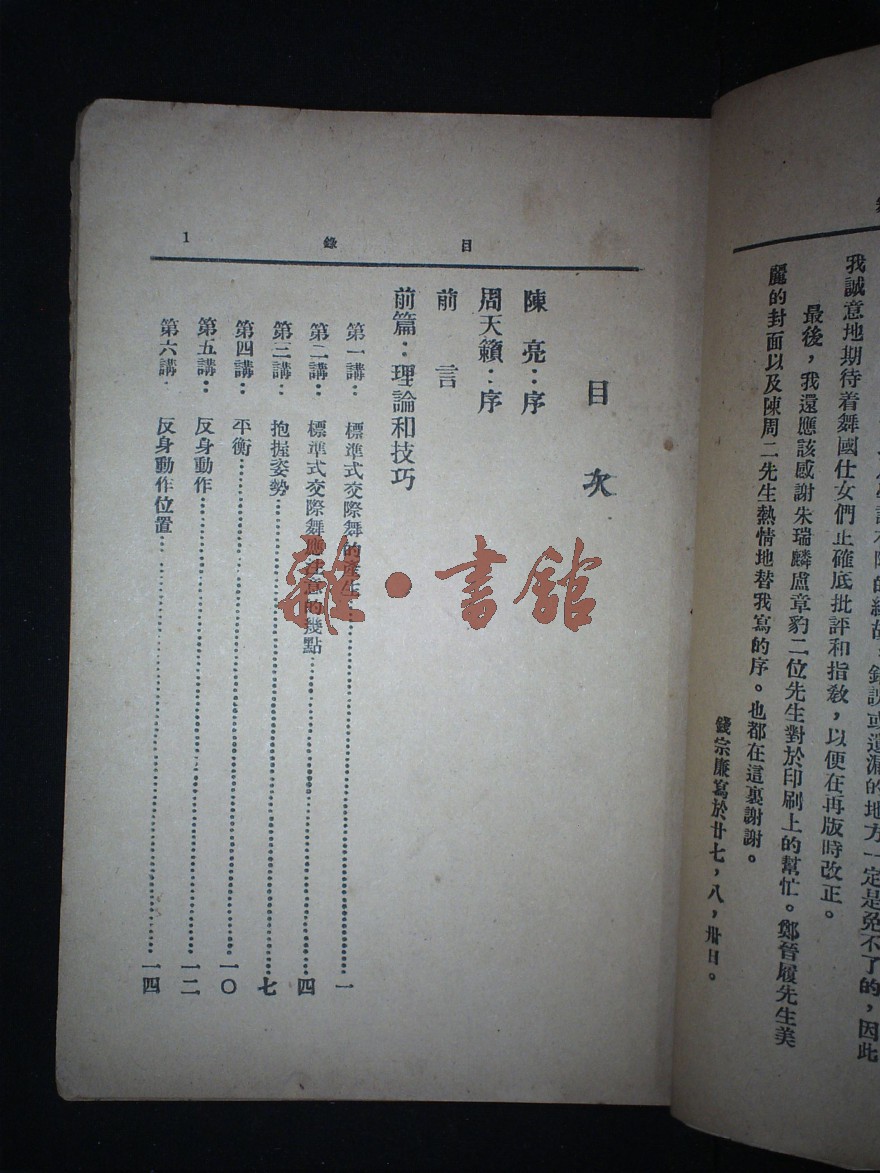 我誠意地期待着舞國仕女們正確底批評和指敎，以便在再版時改正。
最後，我還應該感謝朱瑞麟盧章豹二位先生對於印刷上的幫忙。鄭晉履先生美
麗的封面以及陳周二先生熱情地替我寫的序。也都在這裏謝謝。
錢宗廉寫於廿七，八，卅日。
目錄 1
目次
陳亮：序
周天籟：序
前言
前篇：理論和技巧
第一講：標準式交際舞的產生……一
第二講：標準式交際舞應注意的幾點……四
第三講：抱握姿勢……七
第四講：平衡……一〇
第五講：反身動作……一二
第六講．反身動作位置……一四
雜·書館